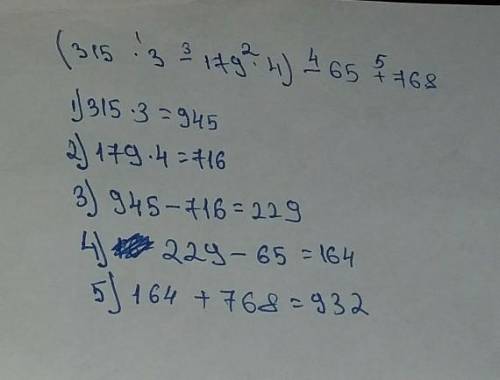 (315 · 3 - 179 · 4) - 65 + 768
1 3 2 4 5
1) 315 · 3 = 945
2) 179 · 4 = 716
3) 945 - 716 = 229
4) 229 - 65 = 164
5) 164 + 768 = 932